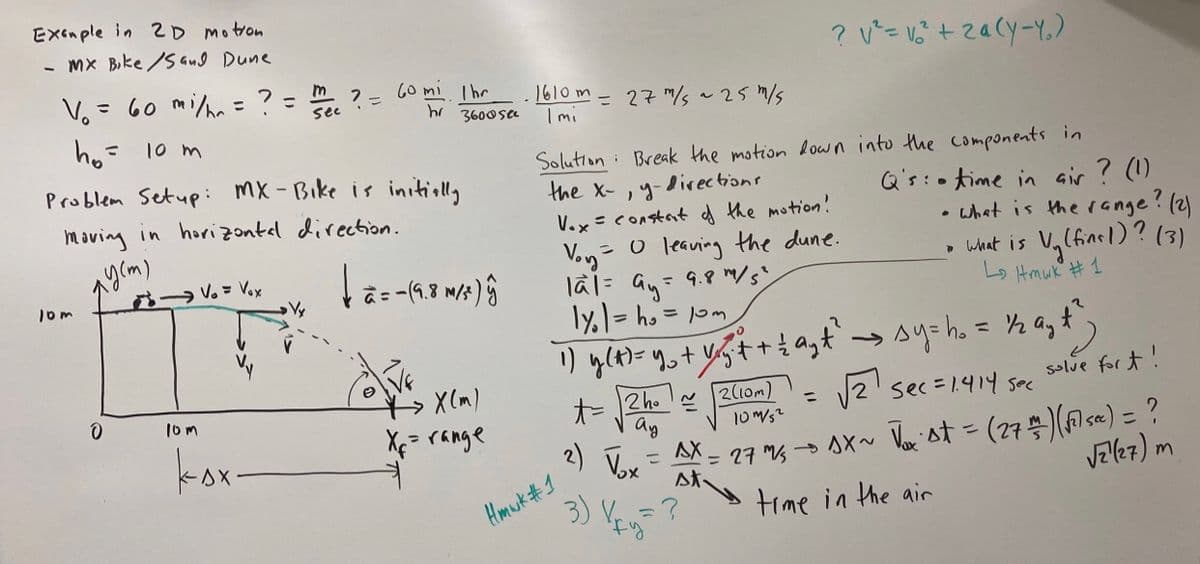 Example in 2D motion
- MX Bike/Sand Dune
V₀ = 60 mi/hr = ? = m/sec ? = 60 mi/hr · 1hr/3600sec · 1610 m/1 mi = 27 m/s ~ 25 m/s
? v² = v₀² + 2a(y-y₀)
h₀ = 10 m
Problem Setup: MX-Bike is initially
moving in horizontal direction.
y(m)
10m
→ V₀ = V₀x
↓ ā = -(9.8 m/s²) ŷ
Vx
Vy
V
θ
Vf
X(m)
0
10m
Xf = range
ΔX
Solution: Break the motion down into the components in
the x-, y-directions
V₀x = constant of the motion!
V₀y = 0 leaving the dune.
|ā| = ay = 9.8 m/s²
|y₀| = h₀ = 10m
Q's: • time in air ? (1)
• what is the range? (2)
• what is Vy(final)? (3)
↳ Hmwk #1
1) y(t) = y₀ + V₀y t⁰ + ½ ay t² → Δy = h₀ = ½ ay t²,
solve for t!
t = √(2h₀/ay) ≅ √(2(10m)/10 m/s²) = √2 sec = 1.414 sec
2) V₀x = ΔX/Δt = 27 m/s → ΔX ~ V₀x · Δt = (27 m/s)(√2 sec) = ?
√2(27) m
time in the air
Hmwk #1
3) Vfy = ?